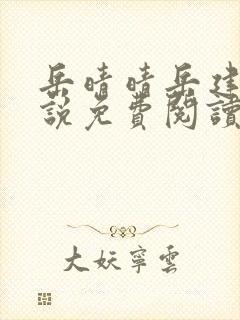 岳晴晴岳建
說免費閱讀
大妖寧雲